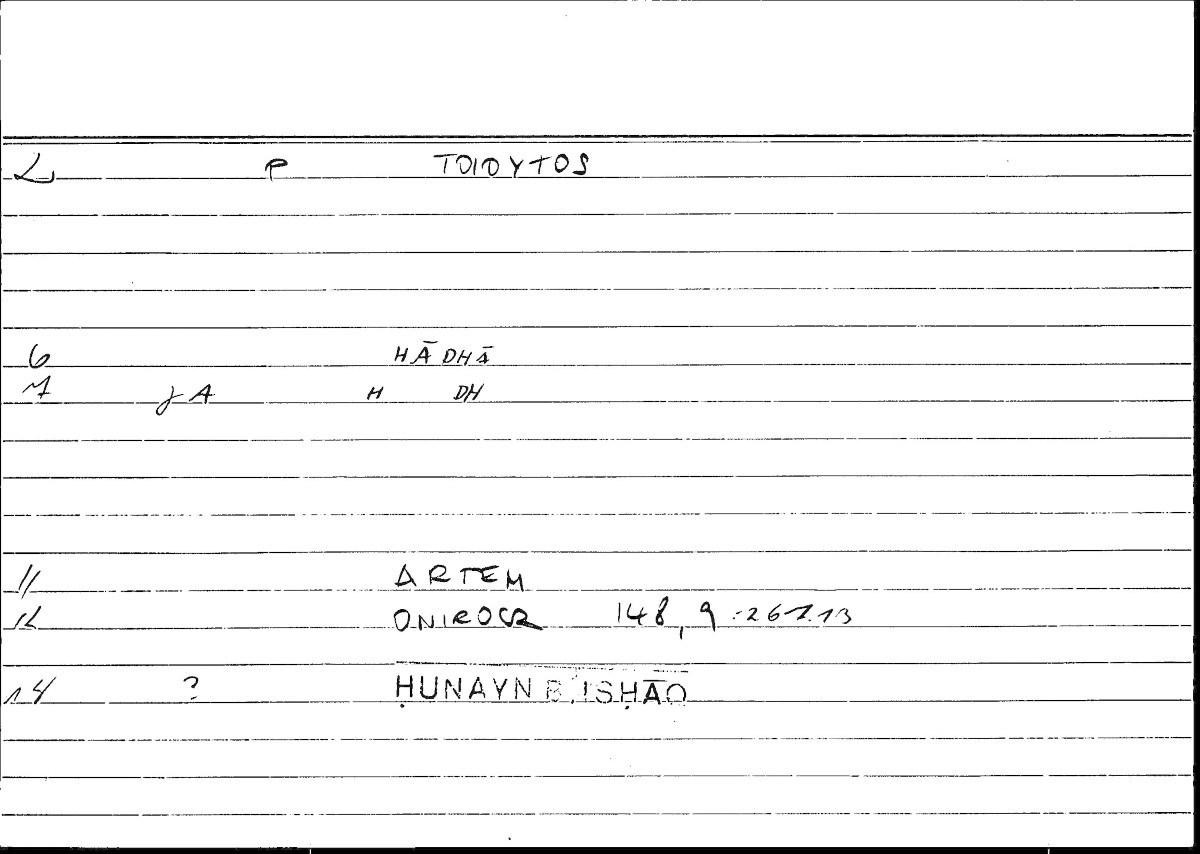 2 P TOIOYTOS
6 HĀDHĀ
7 jA H DH
11 ARTEM
12 ONIROCR 148,9 :267.13
14 ? ḤUNAYN B. ISḤĀQ